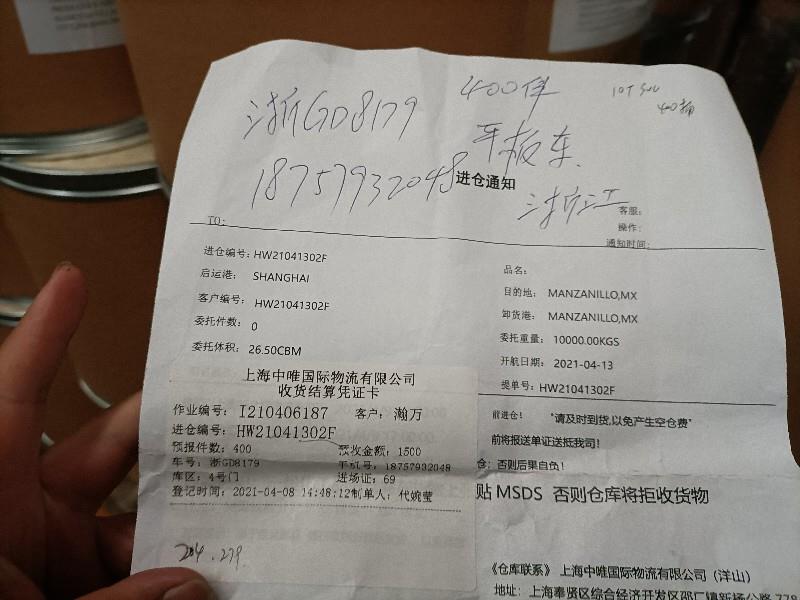 浙GD8179
400件
10T 5uu
18757932048
平板车
浙江
进仓通知
客服:
操作:
TO:
通知时间:
进仓编号: HW21041302F
启运港: SHANGHAI
客户编号: HW21041302F
委托件数: 0
委托体积: 26.50CBM
品名:
目的地: MANZANILLO,MX
卸货港: MANZANILLO,MX
委托重量: 10000.00KGS
开航日期: 2021-04-13
提单号: HW21041302F
上海中唯国际物流有限公司
收货结算凭证卡
作业编号: I210406187 客户: 瀚万
进仓编号: HW21041302F
预报件数: 400 预收金额: 1500
车号: 浙GD8179 手机号: 18757932048
库区: 4号门 进场证: 69
登记时间: 2021-04-08 14:48:12制单人: 代婉莹
204.279
前进仓! "请及时到货,以免产生空仓费"
前将报送单证送抵我司!
仓; 否则后果自负!
贴 MSDS 否则仓库将拒收货物
《仓库联系》 上海中唯国际物流有限公司 (洋山)
地址: 上海奉贤区综合经济开发区邵厂镇新杨公路 778